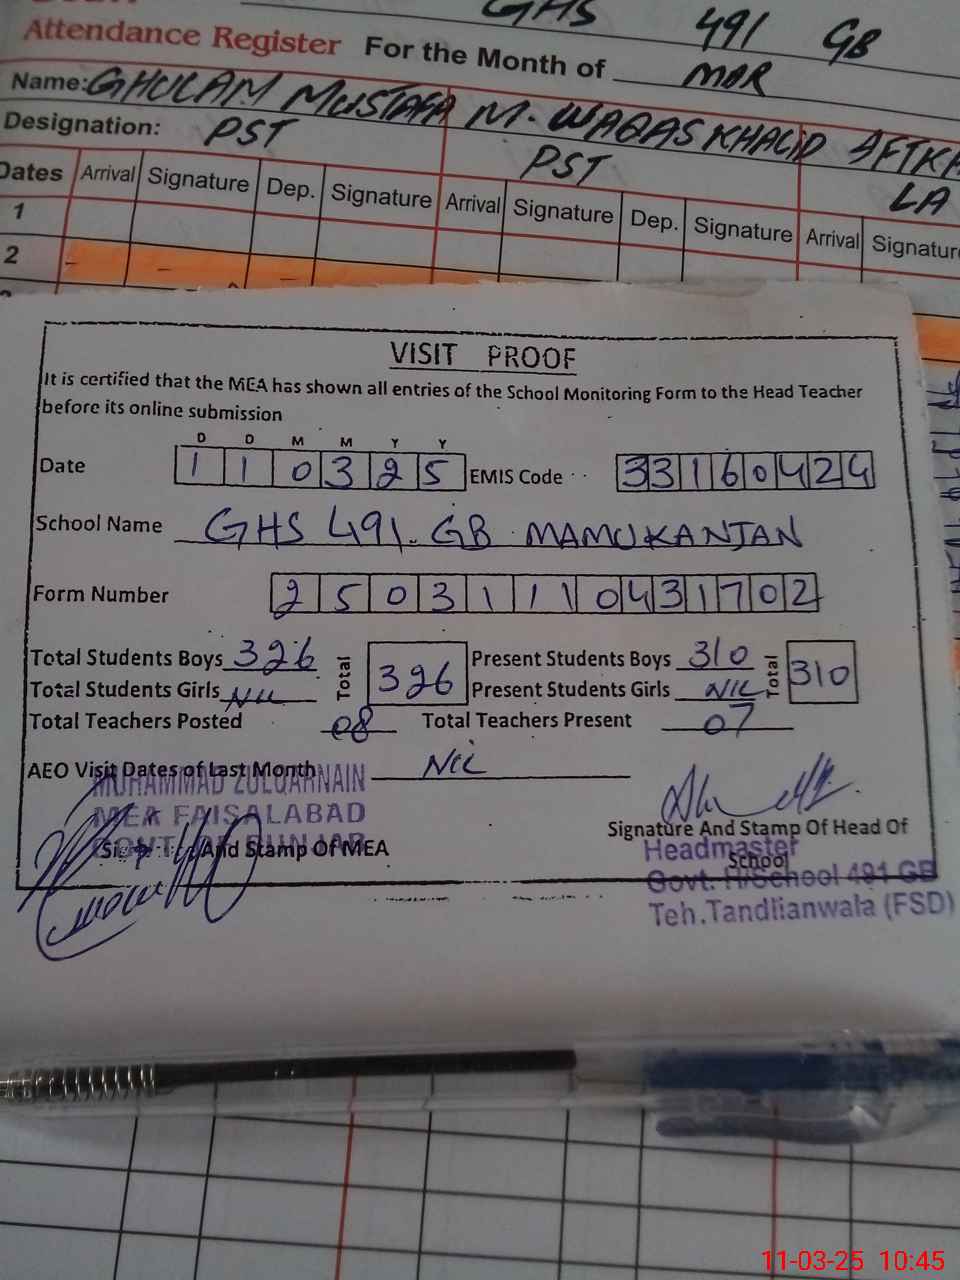 GHS 491 GB
Attendance Register For the Month of MAR
Name: GHULAM MUSTAFA M. WAQAS KHALID
Designation: PST PST LA
Dates Arrival Signature Dep. Signature Arrival Signature Dep. Signature Arrival Signature
1
2
VISIT PROOF
It is certified that the MEA has shown all entries of the School Monitoring Form to the Head Teacher
before its online submission
D D M M Y Y
Date 1 1 0 3 2 5 EMIS Code 3 3 1 6 0 4 2 4
School Name GHS 491. GB MAMUKANJAN
Form Number 2 5 0 3 1 1 1 0 4 3 1 7 0 2
Total Students Boys 326 Total 326 Present Students Boys 310 Total 310
Total Students Girls NIL Present Students Girls NIL
Total Teachers Posted 08 Total Teachers Present 07
AEO Visit Dates of Last Month NIL
MUHAMMAD ZULQARNAIN
MEA FAISALABAD
GOVT OF PUNJAB
Signature And Stamp Of MEA
Signature And Stamp Of Head Of
School
Headmaster
Govt. H/School 491 GB
Teh.Tandlianwala (FSD)
11-03-25 10:45